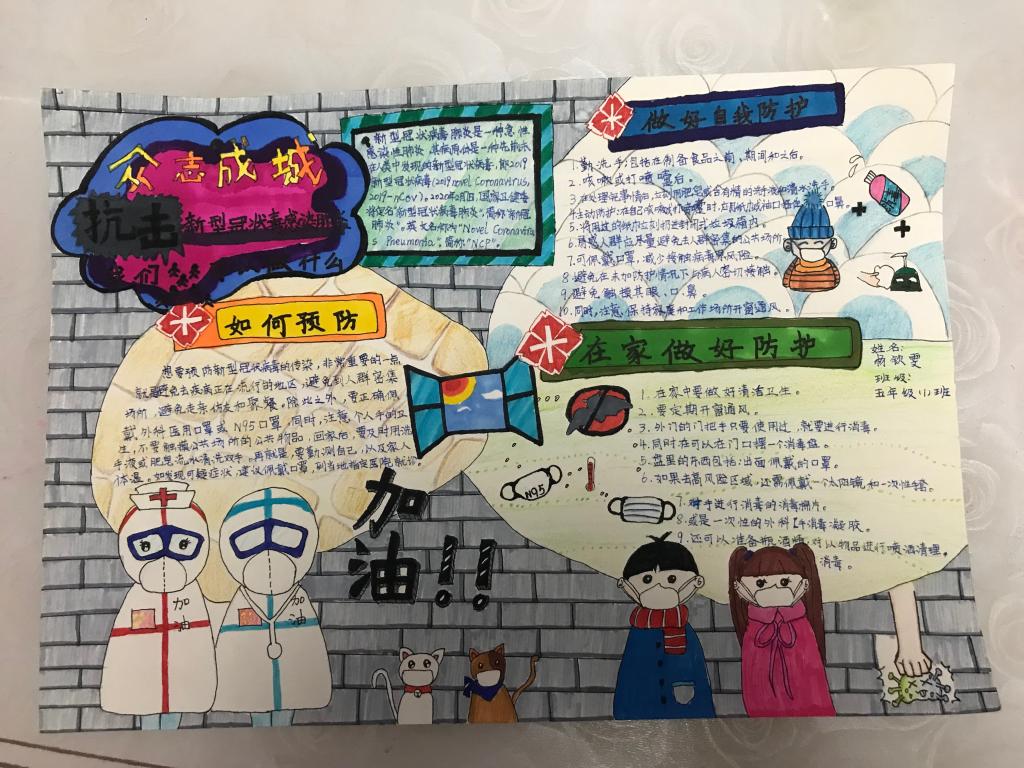 众志成城
抗击
新型冠状病毒感染肺炎
我们
做什么
新型冠状病毒肺炎是一种急性
感染性肺炎,其病原体是一种先前未
在人类中发现的新型冠状病毒,即2019
新型冠状病毒(2019 novel Coronavirus,
2019-nCoV)。2020年2月7日,国家卫健委
将定名新型冠状病毒肺炎,简称"新冠
肺炎"。英文名称为"Novel Coronaviru
s Pneumonia",简称"NCP"。
做好自我防护
1.勤洗手,包括在制备食品之前、期间和之后。
2.咳嗽或打喷嚏后。
3.在处理完事情后,立刻用肥皂或含有精的洗手液和清水洗手。
4.主动防护:在自己咳嗽或打喷嚏时,立即用
口罩。
5.将用过的纸巾立刻扔进封闭式垃圾箱内。
6.易感人群应尽量避免去人群密集的公共场所。
7.可佩戴口罩,减少接触病毒风险。
8.避免在未加防护情况下与病人密切接触。
9.避免触摸其眼、口鼻。
10.同时,注意,保持居室和工作场所开窗通风。
如何预防
想要预防新型冠状病毒的传染,非常重要的一点
就是避免去疾病正在流行的地区,避免到人群密集
场所,避免走亲仿友和聚餐。除此之外,要正确佩
戴外科医用口罩或N95口罩,同时,注意个人手的卫
生,不要触摸公共场所的公共物品,回家后,要及时用洗
手液或肥皂流水清洗双手。再就是,要勤测自己,以及家人
体温。如发现可疑症状,建议佩戴口罩,到当地指定医院就诊。
在家做好防护
姓名:
钦雯
班级:
五年级(1)班
1.在家中要做好清洁卫生。
2.要定期开窗通风。
3.外门的门把手只要使用过,就要进行消毒。
4.同时在可以在门口摆一个消毒盘。
5.盘里的东西包括:出面佩戴的口罩。
6.如果去高风险区域,还需佩戴一个太阳镜和一次性手套。
7.对手进行消毒的消毒棉片。
8.或是一次性的外科手消毒凝胶。
9.还可以准备瓶酒精,对从物品进行喷洒清理,
消毒。
N95
加
油!!
加
油
加
油